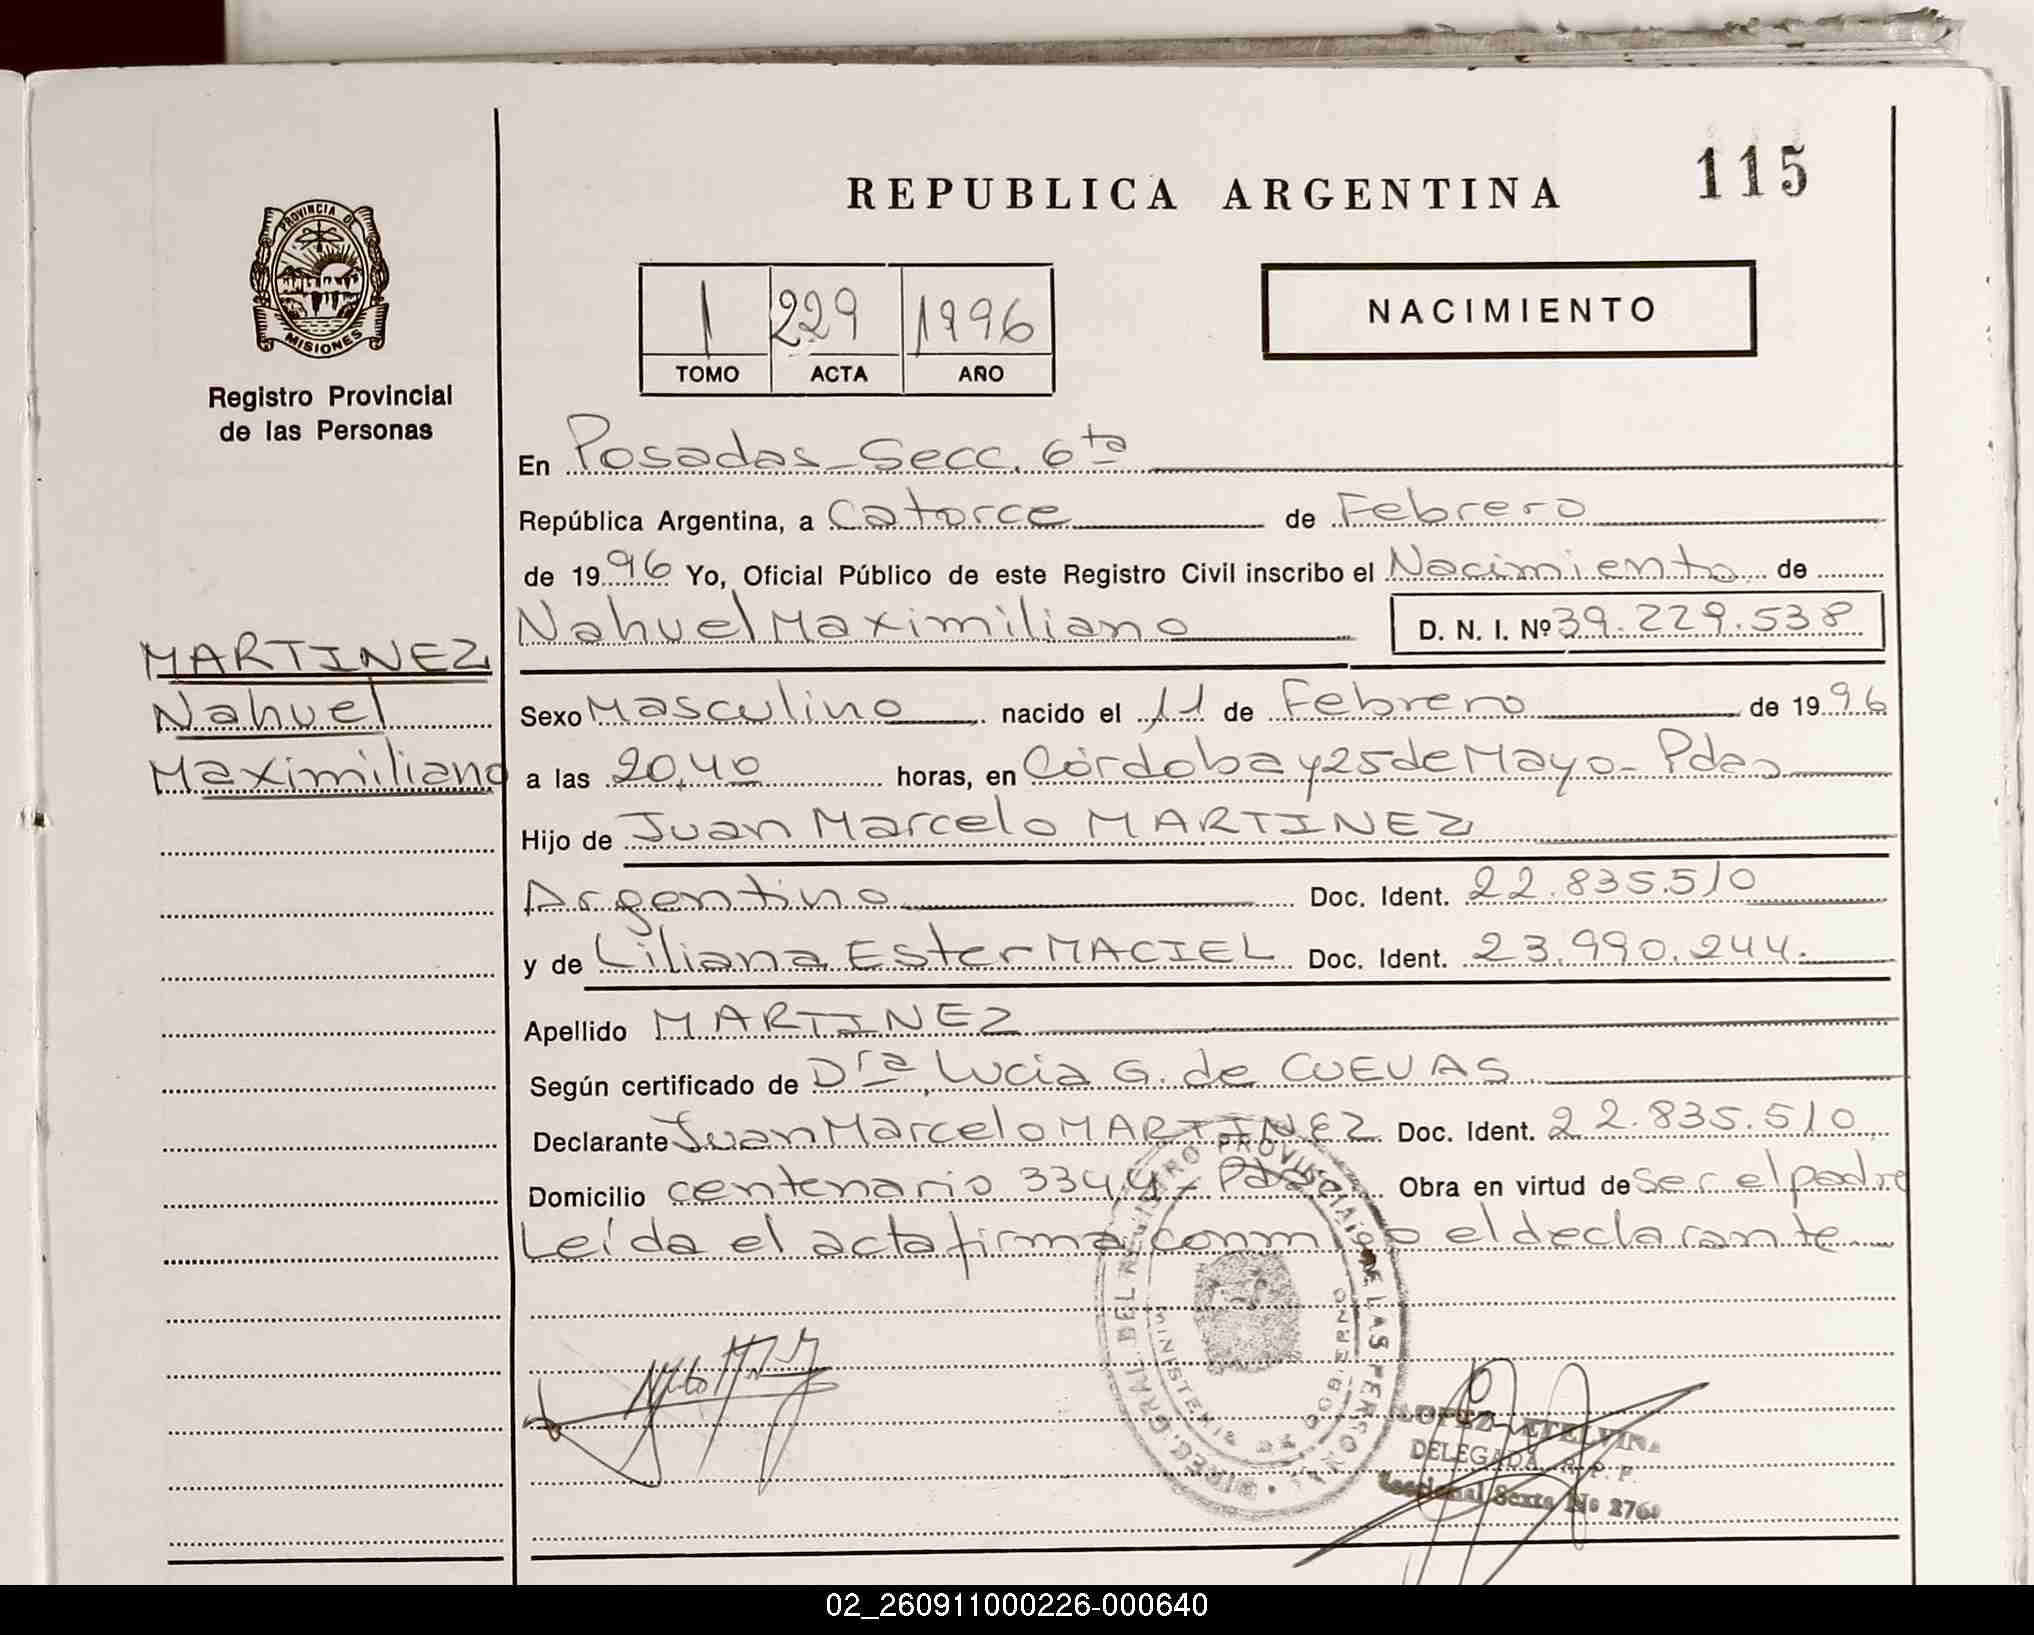 REPUBLICA ARGENTINA
115
PROVINCIA DE
MISIONES
Registro Provincial
de las Personas
1 229 1996
TOMO ACTA AÑO
NACIMIENTO
En Posadas - Secc. 6ta
República Argentina, a Catorce de Febrero
de 1996 Yo, Oficial Público de este Registro Civil inscribo el Nacimiento de
Nahuel Maximiliano D. N. I. Nº 39.229.538
MARTINEZ
Nahuel
Maximiliano
Sexo Masculino nacido el 11 de Febrero de 1996
a las 20,40 horas, en Córdoba y 25 de Mayo - Pdas
Hijo de Juan Marcelo MARTINEZ
Argentino Doc. Ident. 22.835.510
y de Liliana Ester MACIEL Doc. Ident. 23.990.244.
Apellido MARTINEZ
Según certificado de Dra. Lucia G. de CUEVAS
Declarante Juan Marcelo MARTINEZ Doc. Ident. 22.835.510
Domicilio centenario 3344 - Pdas Obra en virtud de Ser el padre
Leída el acta firma conmigo el declarante
DIREC. GRAL. DEL REGISTRO PROVINCIAL DE LAS PERSONAS
MINISTERIO DE GOBIERNO
LOPEZ ETELVINA
DELEGADA R. P. P.
Seccional Sexta Nº 276
02_260911000226-000640